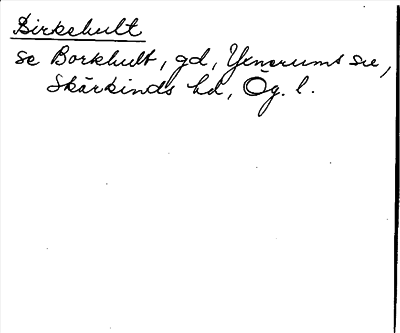 Birkehult
se Borkhult, gd, Yxnerums sn,
Skärkinds hd, Ög. l.